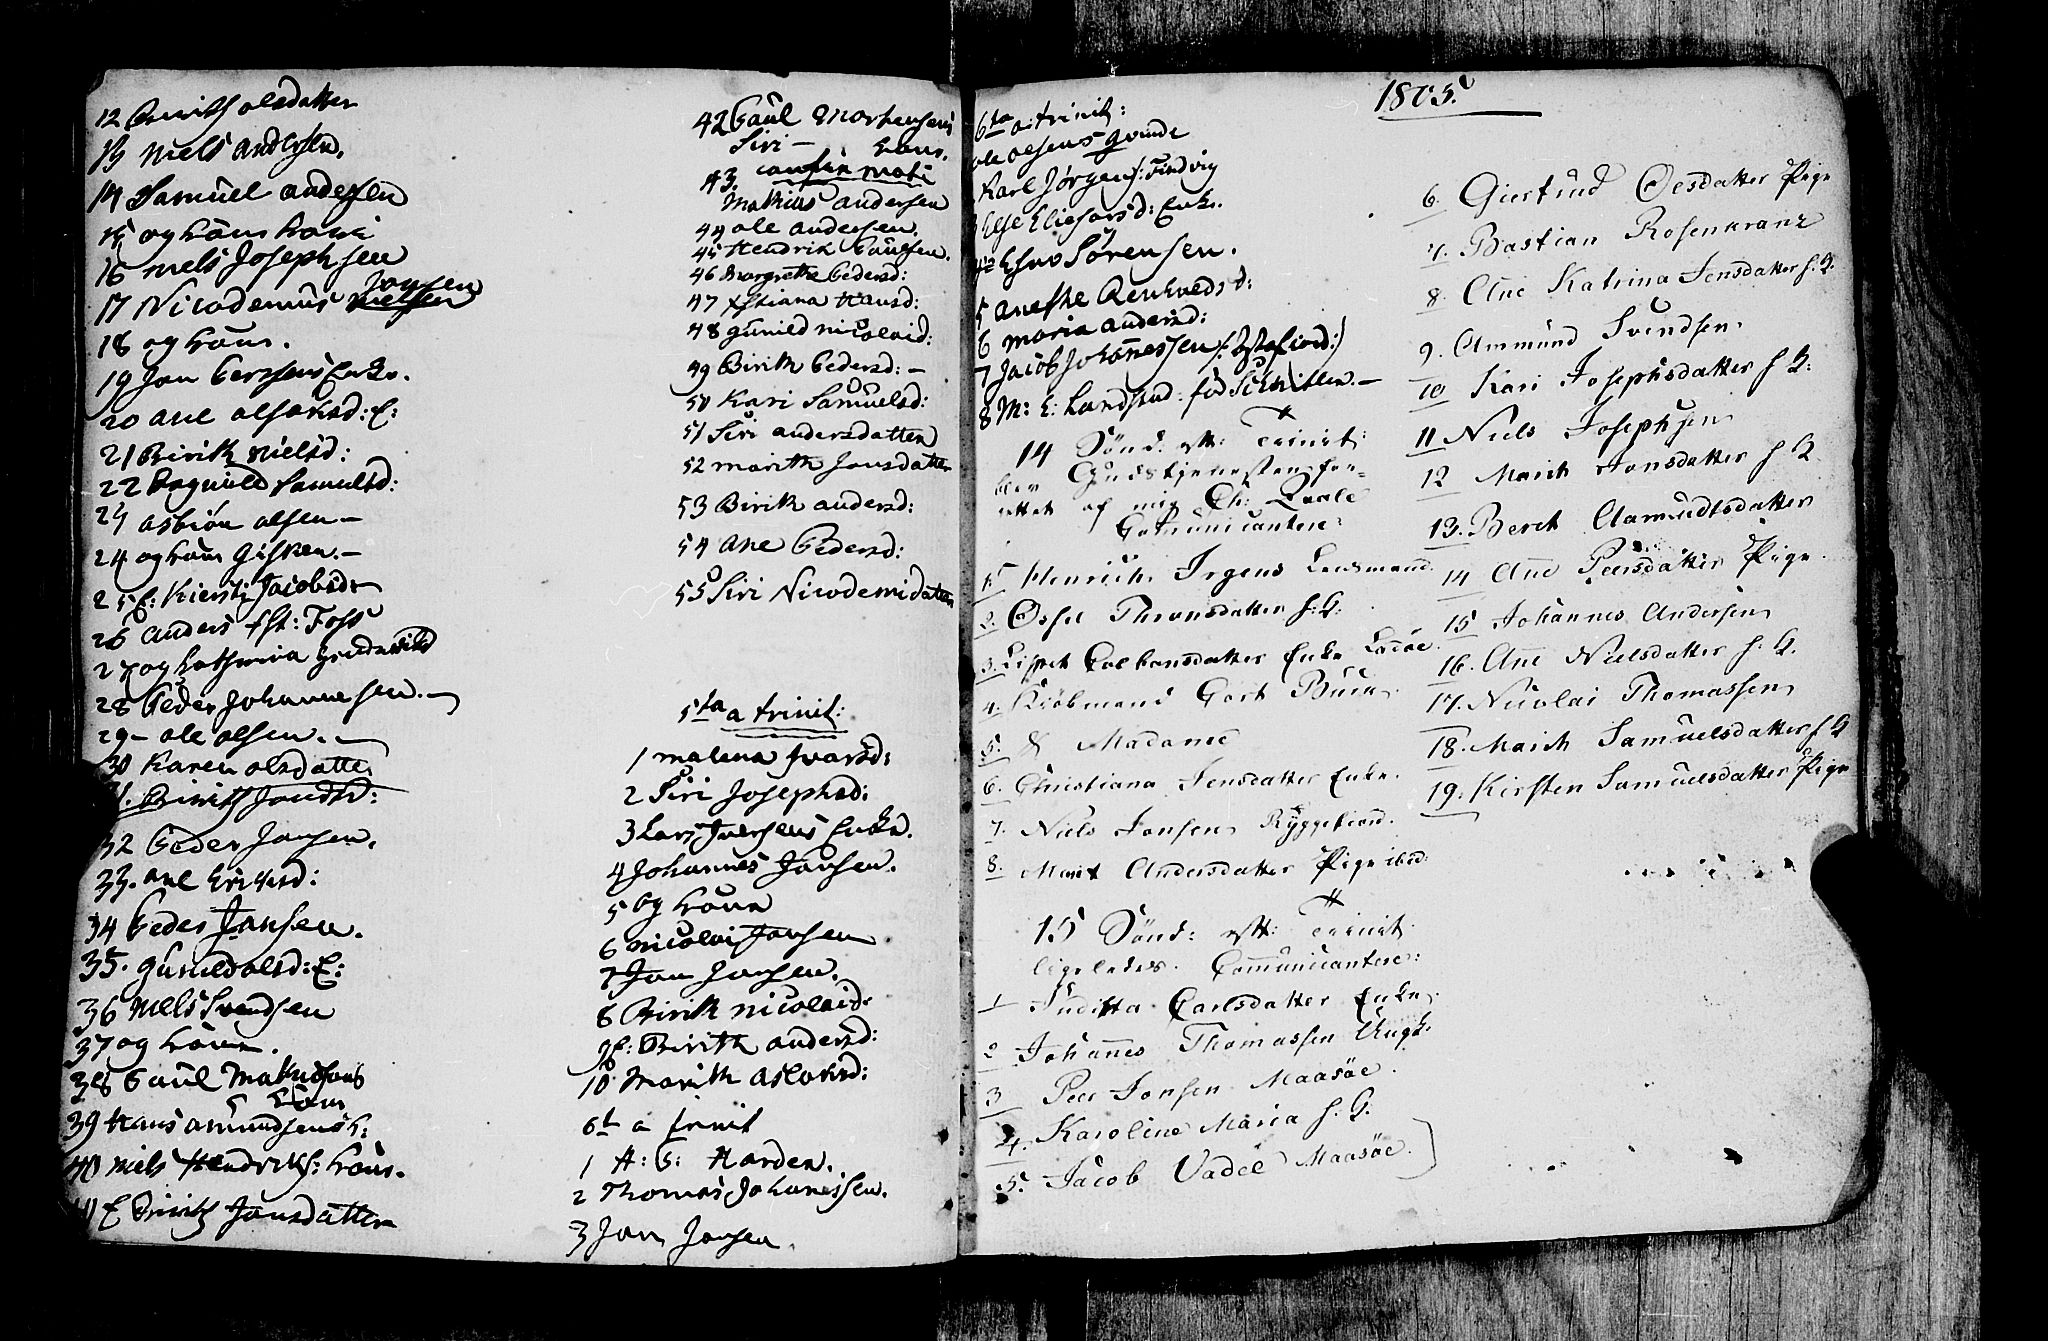 12 Birith olsdatter
13 Niels andersen.
14 Samuel andersen
15 og hans kone
16 niels Josephsen
Jonsen
17 Nicodemus nielsen
18 og hans.
19 Jon Persens Enke.
20 ane olsd: E:
21 Birith Nielsd:
22 Ragnild Samuelsd:
23 asbiön olsen -
24 og hans Gisken. -
25 E: Kiersti Jacobsd:
26 anders Foss
27 og Cathrina
28 Peder Johannesen. -
29 - ole olsen. -
30 Karen olsdatter
31. Birith Jonsd:
32 Peder Jonsen.
33. ane Ericksd:
34 Peder Jonsen.
35. Gunild olsd: E:
36 Niels Svendsen
37 og hans.
38 Paul Mathisens
Hans
39 Hans amundsens k:
40 niels Hendricks: hans.
41 E Birith Jonsdatter
42 Paul Mortensens
Siri - hans.
43.
Mathias andersen
44 ole andersen.
45 Hendrik Paulsen.
46 Margrethe Pedersd:
47 Xstiana Hansd:
48 gunild nicolaid:
49 Birith Pedersd: -
50 Kari Samuelsd:
51 Siri andersdatter
52 marith Jonsdatter
53 Birith andersd:
54 Ane Pedersd:
55 Siri Nicodemidatter
5ta a trinit:
1 malena Ivarsd:
2 Siri Josephsd:
3 Lars Iversens Enke.
4 Johannes Jonsen.
5 og hans
6 nicolai Jonsen
7 Jon Jonsen.
8 Birith nicolaid.
9 E: Birith andersd:
10 Marith aslaksd:
6t a trinit
1 H: P: Harden.
2 Thomas Johannessen.
3 Jon Jonsen.
1805.
6ta a trinit:
ole olsens qvinde
Karl Jørgens: Findvig
3 Else Eliesersd: Enke.
4 Sørensen.
5 anethe
6 maria andersd:
7 Jacob Johannessen
8 M: E: Landstad
14 Sönd. eft: Trinit:
blev Gudstjenesten for-
rettet af mig Ch: Qvale
Communicantere:
1. Henrich Irgens Lensmand.
2. Ossel Thronsdatter h: Q:
3. Lisbet Colbansdatter Enke
4. Kiöbmand Gert Buck
5. & Madame
6. Christiana Jensdatter Enke.
7. Niels Jonsen Ryggefiord.
8. Marit Andersdatter Pige ibid:
15 Sönd: eft: Trinit.
ligeledes. Communicantere:
1 Juditta Carlsdatter Enke.
2 Johannes Thomassen Ungk.
3 Peer Jonsen Maasöe.
4. Karoline Maria h. Q.
5. Jacob Vadel Maasöe.
6. Giertrud Olesdatter Pige
7. Bastian Rosenkranz
8. Ane Katrina Jensdatter h. Q.
9. Ammund Svendsen
10 Kari Josephsdatter h Q:
11 Niels Josephsen
12 Marith Jonsdatter h Q
13. Beret Aamundsdatter
14 Ane Peersdatter Pige.
15 Johannes Andersen
16. Ane Nielsdatter h. Q.
17. Nicolai Thomassen
18. Marith Samuelsdatter h Q
19. Kirsten Samuelsdatter Pige